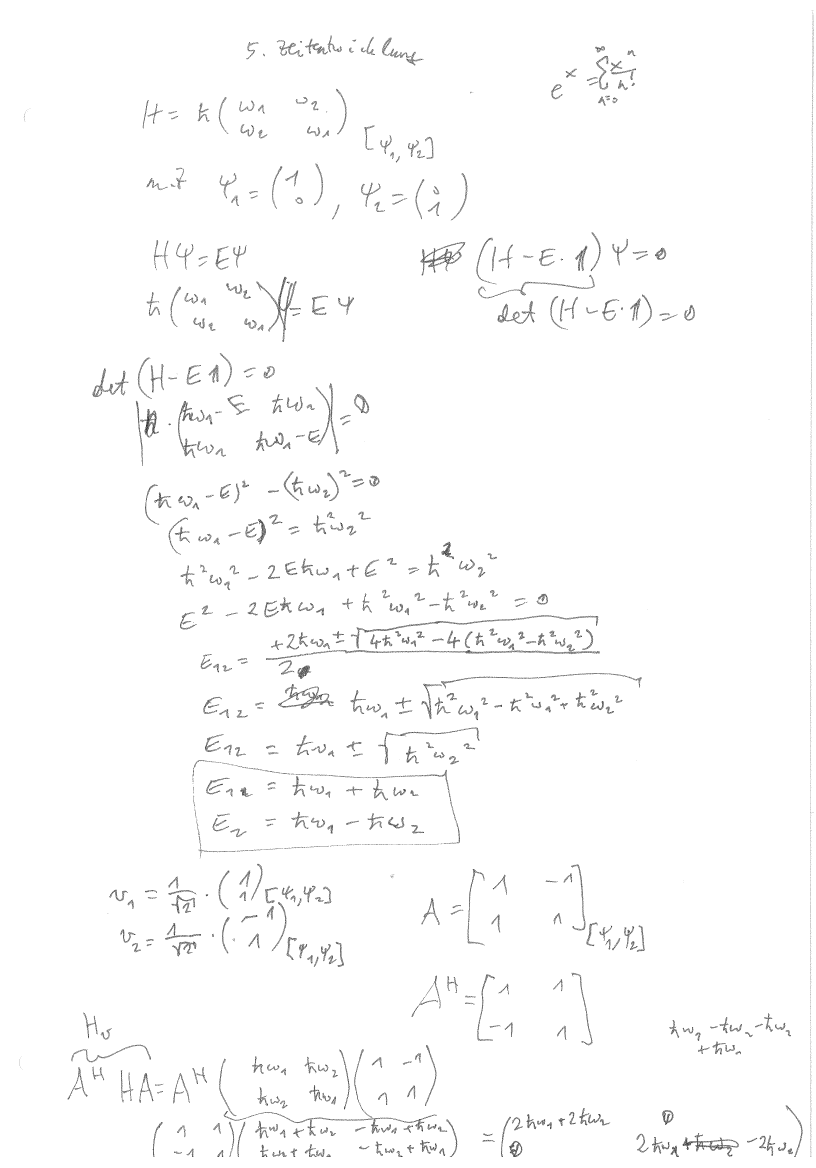 5. Zeitentwicklung
e^x = ∑_{n=0}^{∞} x^n / n!
H = ħ ( ω1 ω2 ; ω2 ω1 ) [ψ1, ψ2]
mit ψ1 = ( 1 ; 0 ), ψ2 = ( 0 ; 1 )
Hψ = Eψ
(H - E·𝟙) ψ = 0
ħ ( ω1 ω2 ; ω2 ω1 ) ψ = E ψ
det (H - E·𝟙) = 0
det (H - E𝟙) = 0
| ( ħω1 - E ħω2 ; ħω2 ħω1 - E ) | = 0
(ħω1 - E)² - (ħω2)² = 0
(ħω1 - E)² = ħ²ω2²
ħ²ω1² - 2Eħω1 + E² = ħ²ω2²
E² - 2Eħω1 + ħ²ω1² - ħ²ω2² = 0
E12 = (+2ħω1 ± √(4ħ²ω1² - 4(ħ²ω1² - ħ²ω2²))) / 2
E12 = ħω1 ± √(ħ²ω1² - ħ²ω1² + ħ²ω2²)
E12 = ħω1 ± √(ħ²ω2²)
E1 = ħω1 + ħω2
E2 = ħω1 - ħω2
v1 = 1/√2 · ( 1 ; 1 ) [ψ1, ψ2]
v2 = 1/√2 · ( -1 ; 1 ) [ψ1, ψ2]
A = [ 1 -1 ; 1 1 ] [ψ1, ψ2]
A^H = [ 1 1 ; -1 1 ]
ħω1 - ħω2 - ħω2
+ ħω1
H_v
A^H HA = A^H ( ħω1 ħω2 ; ħω2 ħω1 ) ( 1 -1 ; 1 1 )
( 1 1 ; -1 1 ) ( ħω1 + ħω2 -ħω1 + ħω2 ; ħω2 + ħω1 -ħω2 + ħω1 ) = ( 2ħω1 + 2ħω2 0 ; 0 2ħω1 - 2ħω2 )